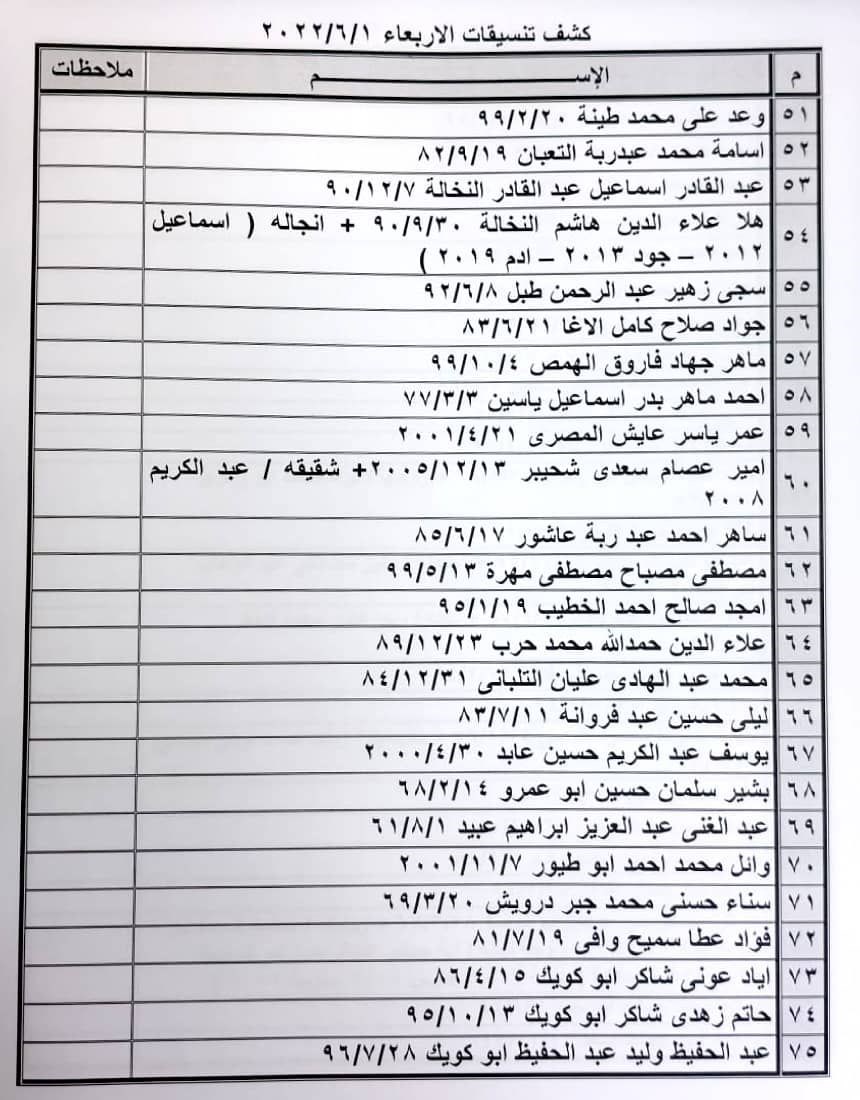 كشف تنسيقات الاربعاء ٢٠٢٢/٦/١
م الإســــــــــــــم ملاحظات
٥١ وعد على محمد طينة ٩٩/٢/٢٠
٥٢ اسامة محمد عبدربة التعبان ٨٢/٩/١٩
٥٣ عبد القادر اسماعيل عبد القادر النخالة ٩٠/١٢/٧
٥٤ هلا علاء الدين هاشم النخالة ٩٠/٩/٣٠ + انجاله ( اسماعيل
٢٠١٢ – جود ٢٠١٣ – ادم ٢٠١٩ )
٥٥ سجى زهير عبد الرحمن طبل ٩٢/٦/٨
٥٦ جواد صلاح كامل الاغا ٨٣/٦/٢١
٥٧ ماهر جهاد فاروق الهمص ٩٩/١٠/٤
٥٨ احمد ماهر بدر اسماعيل ياسين ٧٧/٣/٣
٥٩ عمر ياسر عايش المصرى ٢٠٠١/٤/٢١
٦٠ امير عصام سعدى شحيبر ٢٠٠٥/١٢/١٣+ شقيقه / عبد الكريم
٢٠٠٨
٦١ ساهر احمد عبد ربة عاشور ٨٥/٦/١٧
٦٢ مصطفى مصباح مصطفى مهرة ٩٩/٥/١٣
٦٣ امجد صالح احمد الخطيب ٩٥/١/١٩
٦٤ علاء الدين حمدالله محمد حرب ٨٩/١٢/٢٣
٦٥ محمد عبد الهادى عليان التلبانى ٨٤/١٢/٣١
٦٦ ليلى حسين عبد فروانة ٨٣/٧/١١
٦٧ يوسف عبد الكريم حسين عابد ٢٠٠٠/٤/٣٠
٦٨ بشير سلمان حسين ابو عمرو ٦٨/٢/١٤
٦٩ عبد الغنى عبد العزيز ابراهيم عبيد ٦١/٨/١
٧٠ وائل محمد احمد ابو طيور ٢٠٠١/١١/٧
٧١ سناء حسنى محمد جبر درويش ٦٩/٣/٢٠
٧٢ فؤاد عطا سميح وافى ٨١/٧/١٩
٧٣ اياد عونى شاكر ابو كويك ٨٦/٤/١٥
٧٤ حاتم زهدى شاكر ابو كويك ٩٥/١٠/١٣
٧٥ عبد الحفيظ وليد عبد الحفيظ ابو كويك ٩٦/٧/٢٨